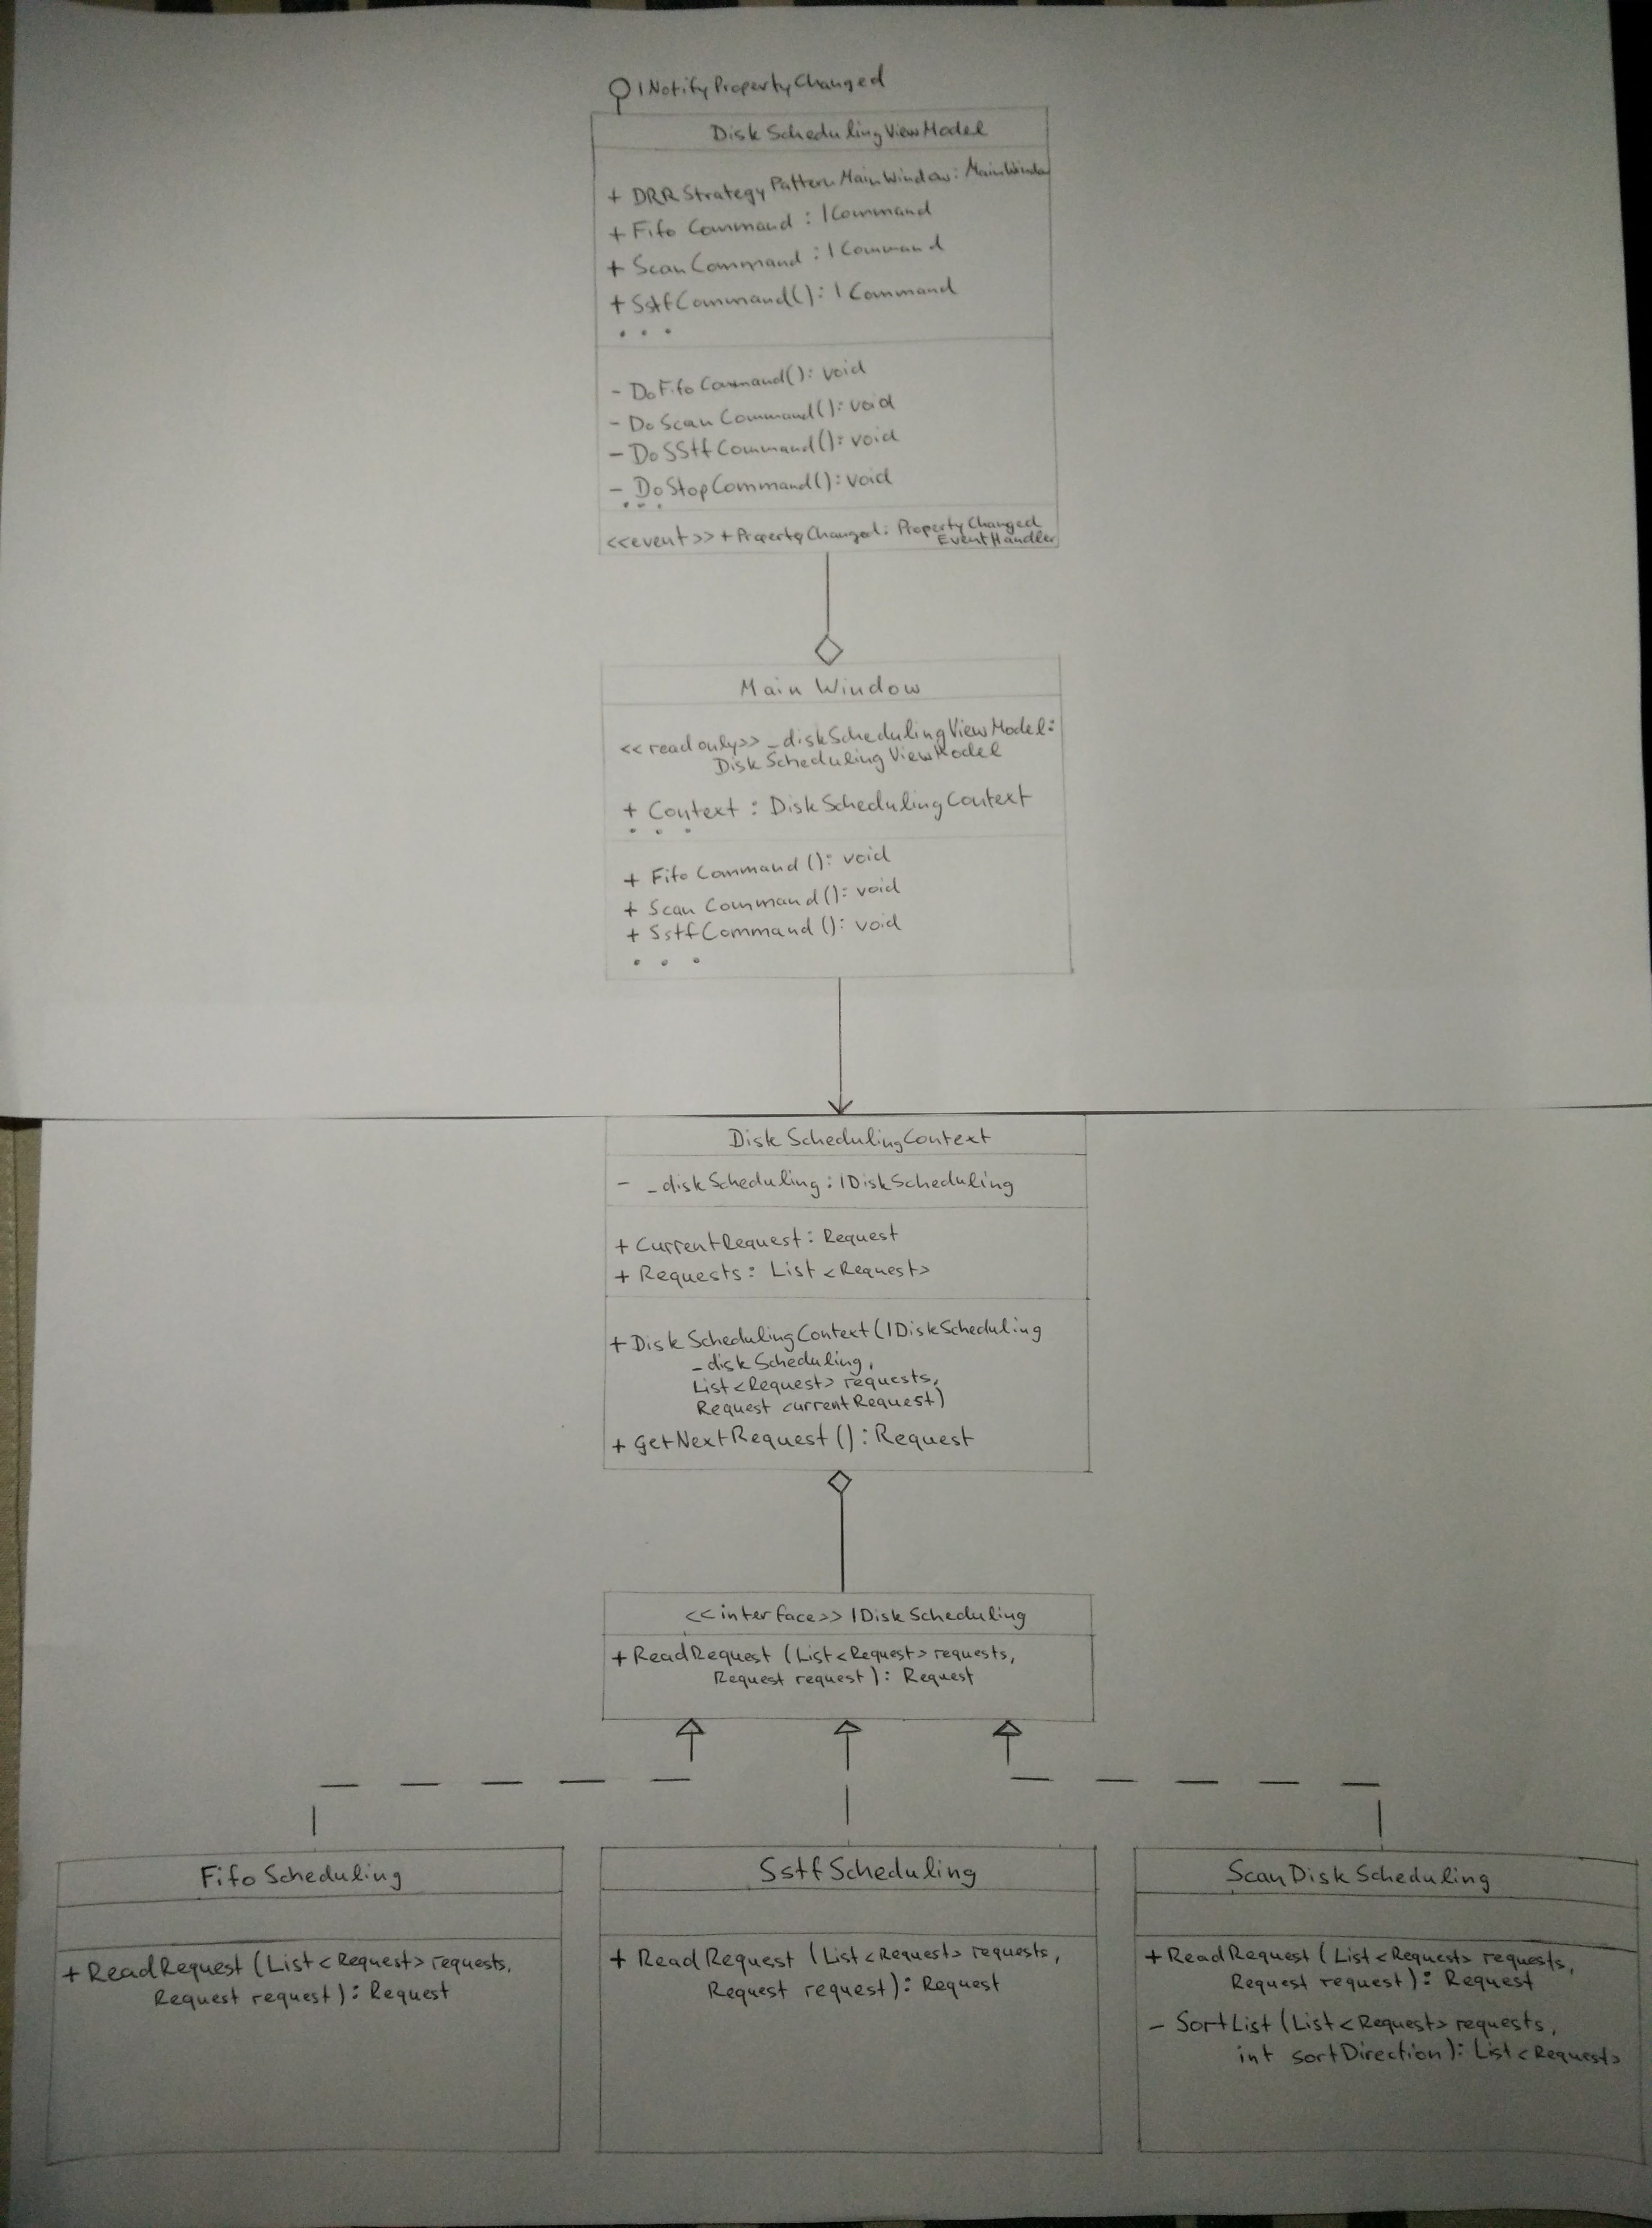 INotifyPropertyChanged
DiskSchedulingViewModel
+ DRRStrategyPatternMainWindow: MainWindow
+ Fifo Command : ICommand
+ ScanCommand : ICommand
+ SstfCommand(): ICommand
...
- DoFifoCommand(): void
- DoScanCommand(): void
- DoSStfCommand(): void
- DoStopCommand(): void
...
<<event>> + PropertyChanged: PropertyChanged
EventHandler
Main Window
<<readonly>> _diskSchedulingViewModel:
DiskSchedulingViewModel
+ Context : DiskSchedulingContext
...
+ FifoCommand(): void
+ ScanCommand(): void
+ SstfCommand(): void
...
DiskSchedulingContext
- _diskScheduling: IDiskScheduling
+ CurrentRequest: Request
+ Requests: List<Request>
+ DiskSchedulingContext(IDiskScheduling
_diskScheduling,
List<Request> requests,
Request currentRequest)
+ GetNextRequest(): Request
<<interface>> IDiskScheduling
+ ReadRequest (List<Request> requests,
Request request): Request
FifoScheduling
+ ReadRequest (List<Request> requests,
Request request): Request
SstfScheduling
+ ReadRequest (List<Request> requests,
Request request): Request
ScanDiskScheduling
+ ReadRequest (List<Request> requests,
Request request): Request
- SortList (List<Request> requests,
int sortDirection): List<Request>